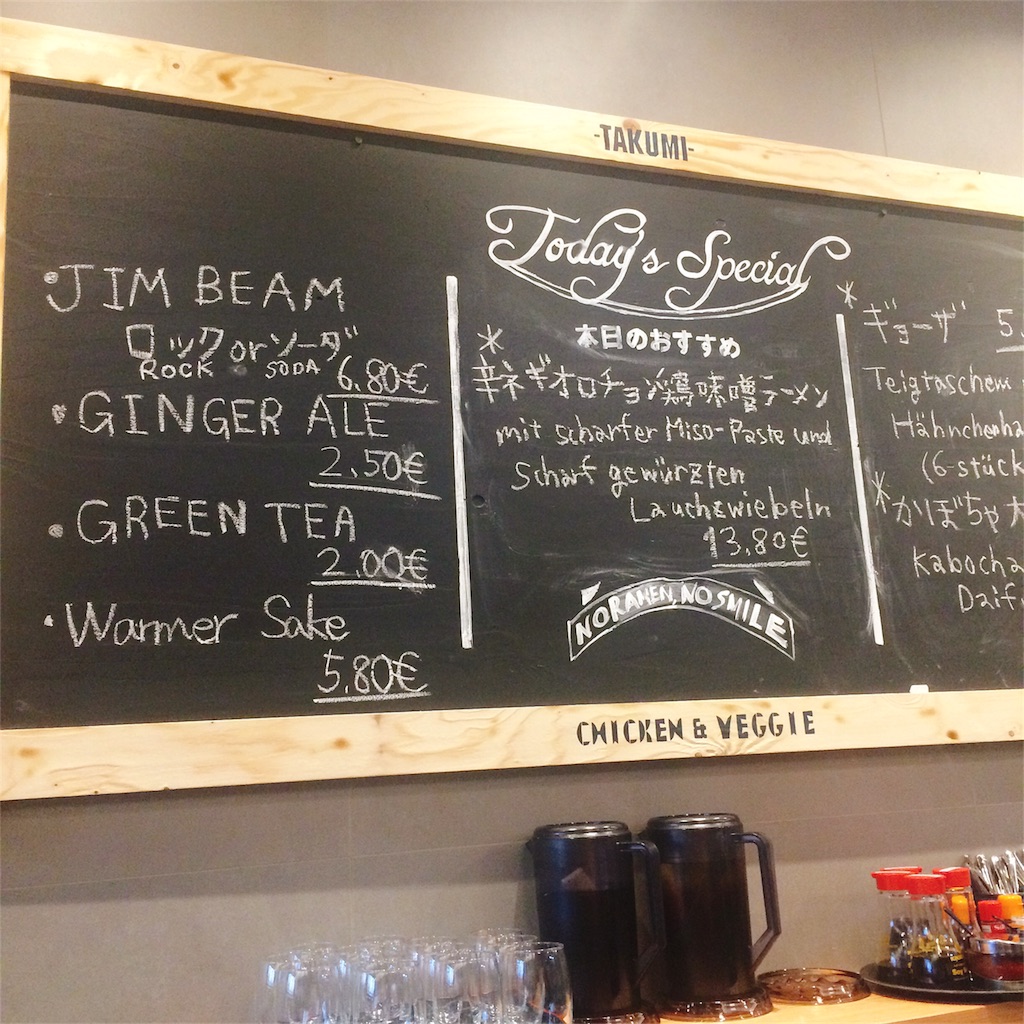 -TAKUMI-
• JIM BEAM
ロック or ソーダ
ROCK SODA 6.80€
• GINGER ALE
2.50€
• GREEN TEA
2.00€
• Warmer Sake
5.80€
Today's Special
本日のおすすめ
* 辛ネギオロチョン鶏味噌ラーメン
mit scharfer Miso-Paste und
Scharf gewürzten
Lauchzwiebeln
13.80€
NO RAMEN, NO SMILE
* ギョーザ 5.
Teigtaschem
Hähnchenha
(6-stück
* かぼちゃ大
Kabocha
Daif
CHICKEN & VEGGIE